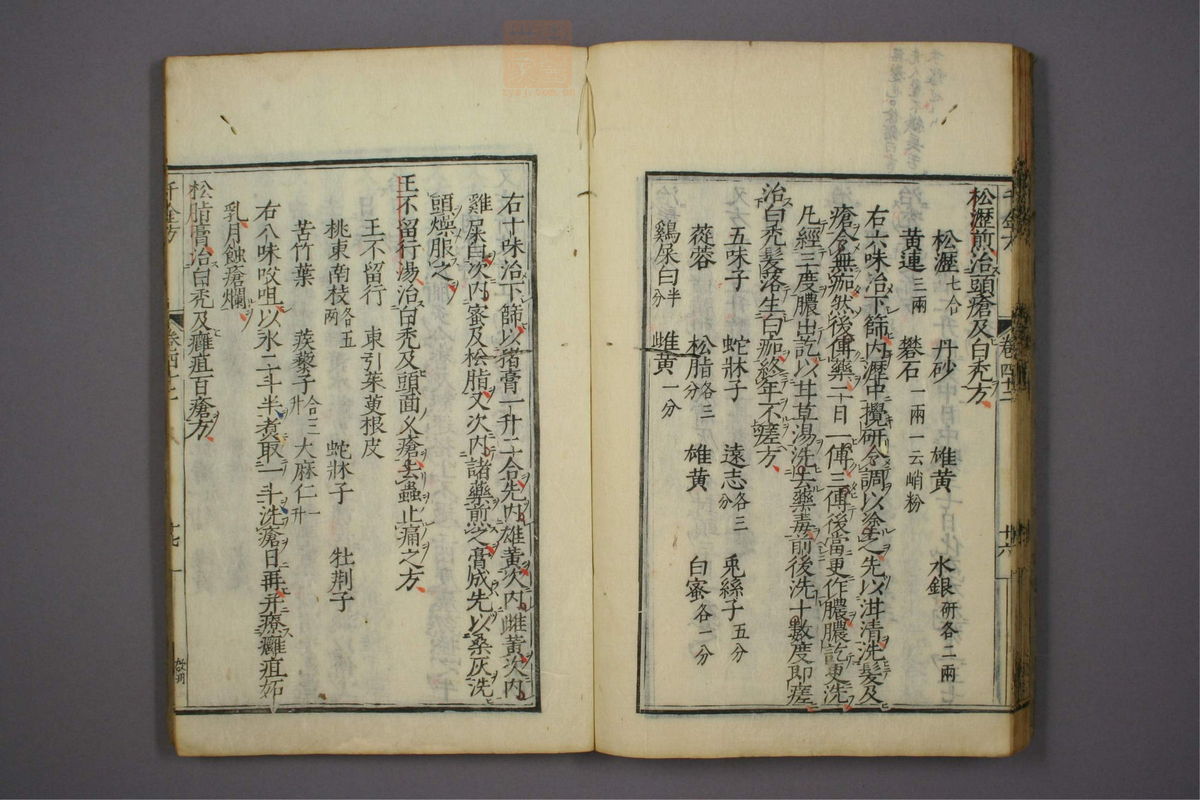 松瀝煎治頭瘡及白禿方
松瀝七合 丹砂 雄黃 水銀研各二兩
黄連三兩 礬石一兩一云峭粉
右六味治下篩内瀝中攪研令調以塗之先以泔清洗髮及
瘡令無痂然後傅藥二日一傅三傅後當更作膿膿訖更洗
凡經三度膿出訖以甘草湯洗去藥毒前後洗十數度即瘥
治白禿髮落生白痂終年不瘥方
五味子 蛇牀子 遠志各三分 兎絲子五分
蓯蓉 松脂各三分 雄黃 白蜜各一分
鷄屎白半分 雌黃一分
千金方 卷四十三 廿六
右十味治下篩以猪膏一升二合先内雄黃次内雌黃次内
雞屎白次内蜜及松脂又次内諸藥煎之膏成先以桑灰洗
頭燥服之
王不留行湯治白禿及頭面久瘡去蟲止痛之方
王不留行 東引茱萸根皮
桃東南枝各五兩 蛇牀子 牡荆子
苦竹葉 蒺藜子各三升 大麻仁一升
右八味㕮咀以水二斗半煮取一斗洗瘡日再并療癰疽妬
乳月蝕瘡爛
松脂膏治白禿及癰疽百瘡方
千金方